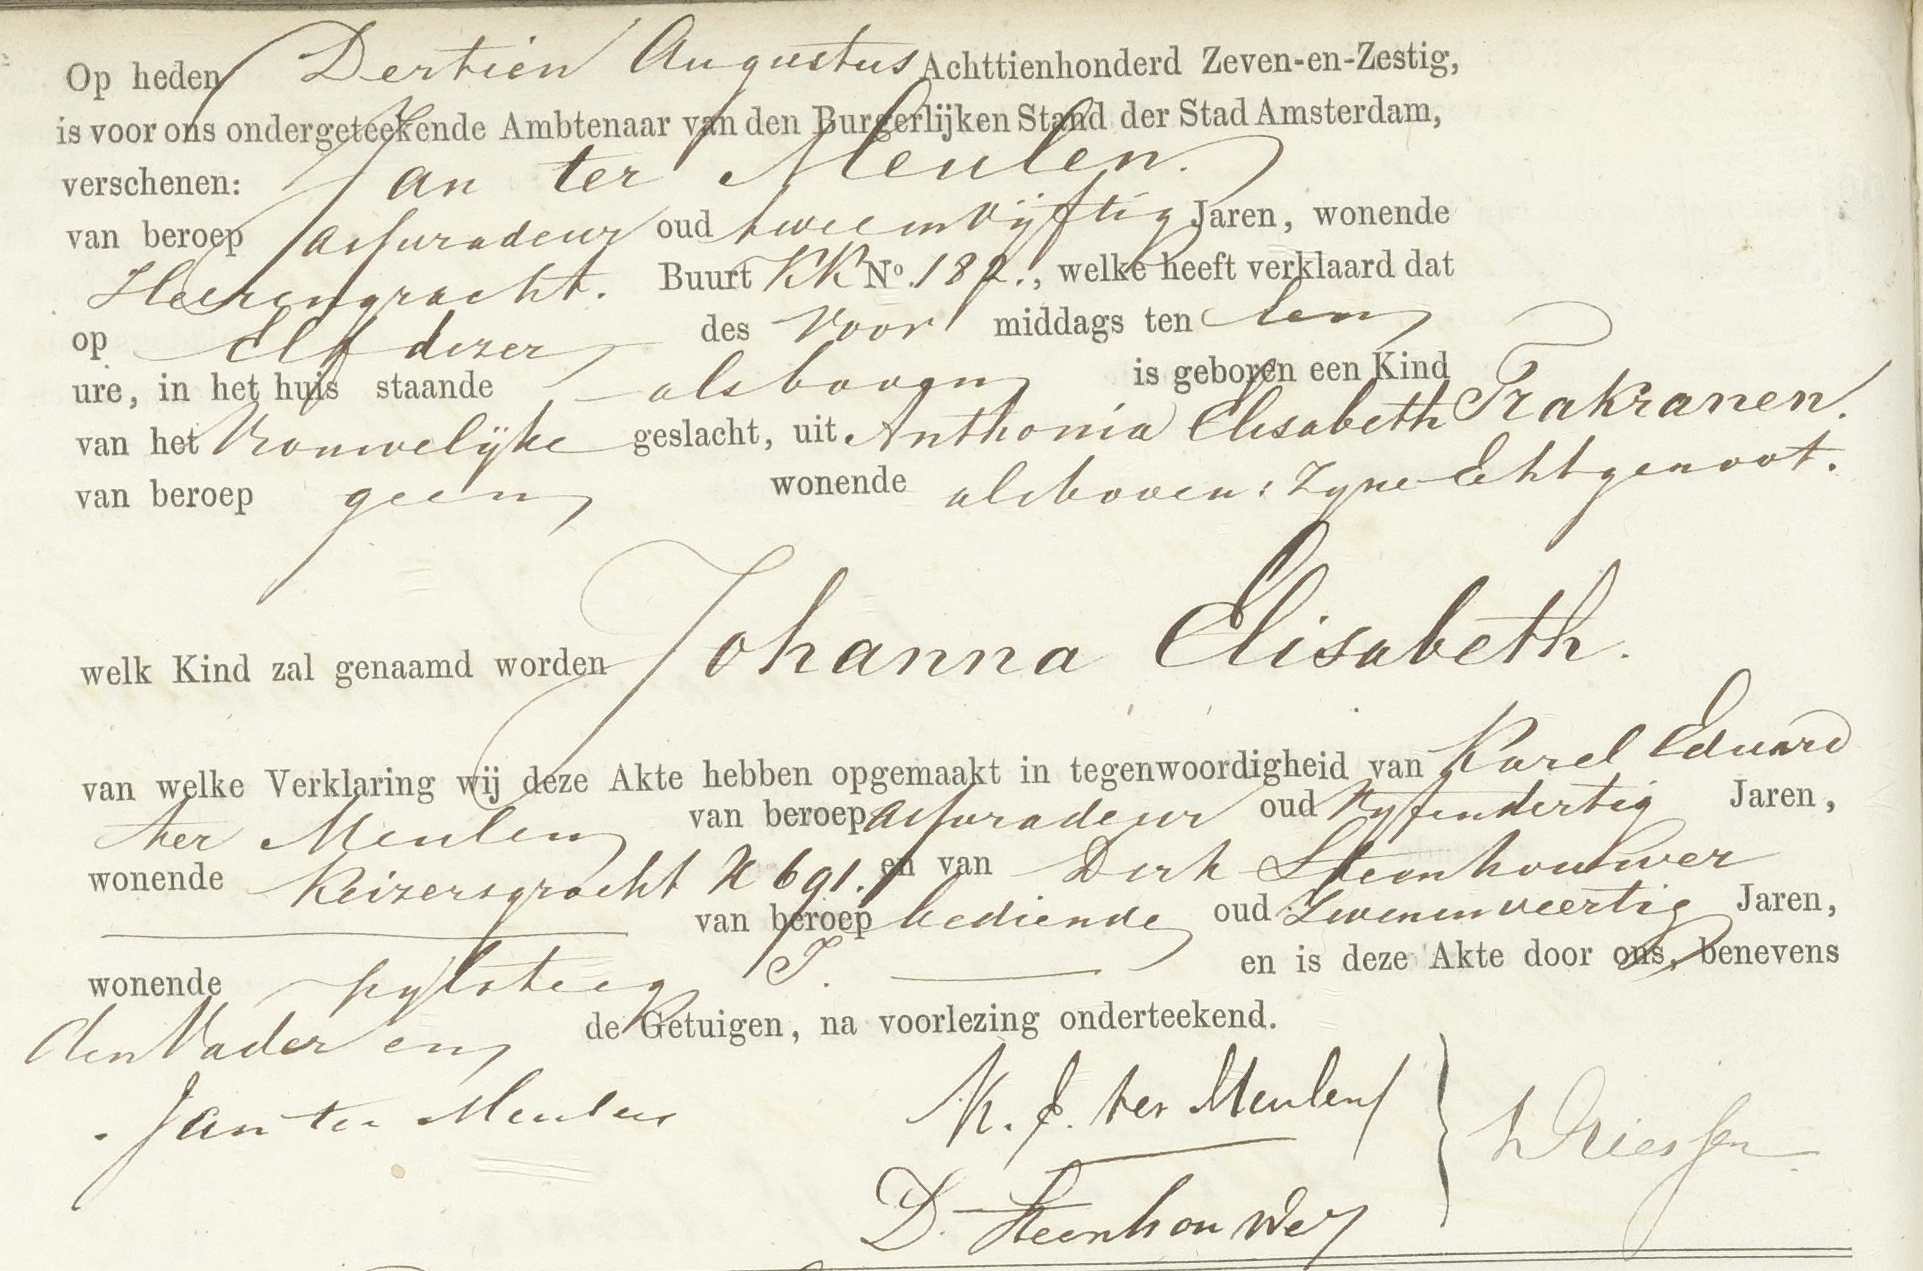 Op heden Dertien Augustus Achttienhonderd Zeven-en-Zestig,
is voor ons ondergeteekende Ambtenaar van den Burgerlijken Stand der Stad Amsterdam,
verschenen: Jan ter Meulen.
van beroep assuradeur oud tweeenvijftig Jaren, wonende
Heerengracht. Buurt KK No. 182., welke heeft verklaard dat
op elf dezer des voor middags ten een
ure, in het huis staande alsboven is geboren een Kind
van het Vrouwelijke geslacht, uit Anthonia Elisabeth Trakranen.
van beroep geen wonende alsboven: Zyne Echtgenoot.
welk Kind zal genaamd worden Johanna Elisabeth.
van welke Verklaring wij deze Akte hebben opgemaakt in tegenwoordigheid van Karel Eduard
ter Meulen van beroep assuradeur oud vyfendertig Jaren,
wonende Keizersgracht 691. en van Dirk Steenhouwer
van beroep bediende oud Zevenenveertig Jaren,
wonende pylsteeg J. en is deze Akte door ons, benevens
den Vader en de Getuigen, na voorlezing onderteekend.
Jan ter Meulen K. E. ter Meulen
D. Steenhouwer